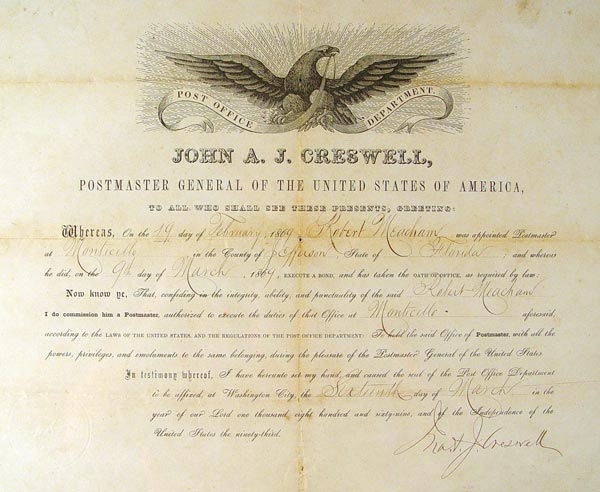 POST OFFICE DEPARTMENT.
JOHN A. J. CRESWELL,
POSTMASTER GENERAL OF THE UNITED STATES OF AMERICA,
TO ALL WHO SHALL SEE THESE PRESENTS, GREETING:
Whereas, On the 19 day of February, 1869 Robert Meacham was appointed Postmaster
at Monticello, in the County of Jefferson, State of Florida; and whereas
he did, on the 9th day of March, 1869, EXECUTE A BOND, and has taken the OATH OF OFFICE, as required by law:
Now know ye, That, confiding in the integrity, ability, and punctuality of the said Robert Meacham
I do commission him a Postmaster, authorized to execute the duties of that Office at Monticello aforesaid,
according to the LAWS OF THE UNITED STATES, AND THE REGULATIONS OF THE POST OFFICE DEPARTMENT: To hold the said Office of Postmaster, with all the
powers, privileges, and emoluments to the same belonging, during the pleasure of the Postmaster General of the United States.
In testimony whereof, I have hereunto set my hand, and caused the seal of the Post Office Department
to be affixed, at Washington City, the Sixteenth day of March in the
year of our Lord one thousand eight hundred and sixty-nine, and of the Independence of the
United States the ninety-third.
Jno. A. J. Creswell